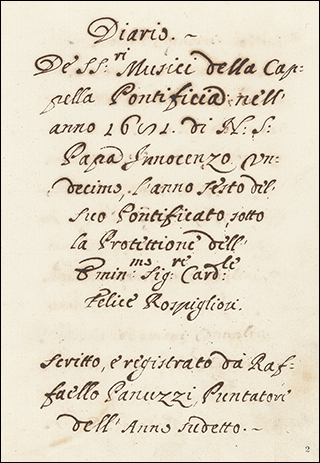 Diario.~
De SS:ri Musici della Cap=
pella Pontificia nell'
anno 1681. di N: S:
Papa Innocenzo Un=
decimo, l'anno sesto del
suo Pontificato, sotto
la Protittione dell'
Emin:mo Sig:re Card:le
Felice Rospigliosi.
scritto, e registrato da Raf=
faello Panuzzi Puntatore
dell'Anno sudetto.~
2